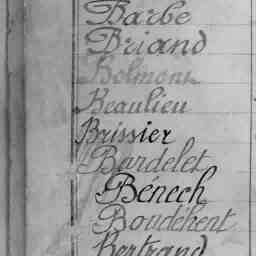 Barbe
Briand
Bolmont
Beaulieu
Brissier
Bardelet
Bénech
Boudéhent
Bertrand